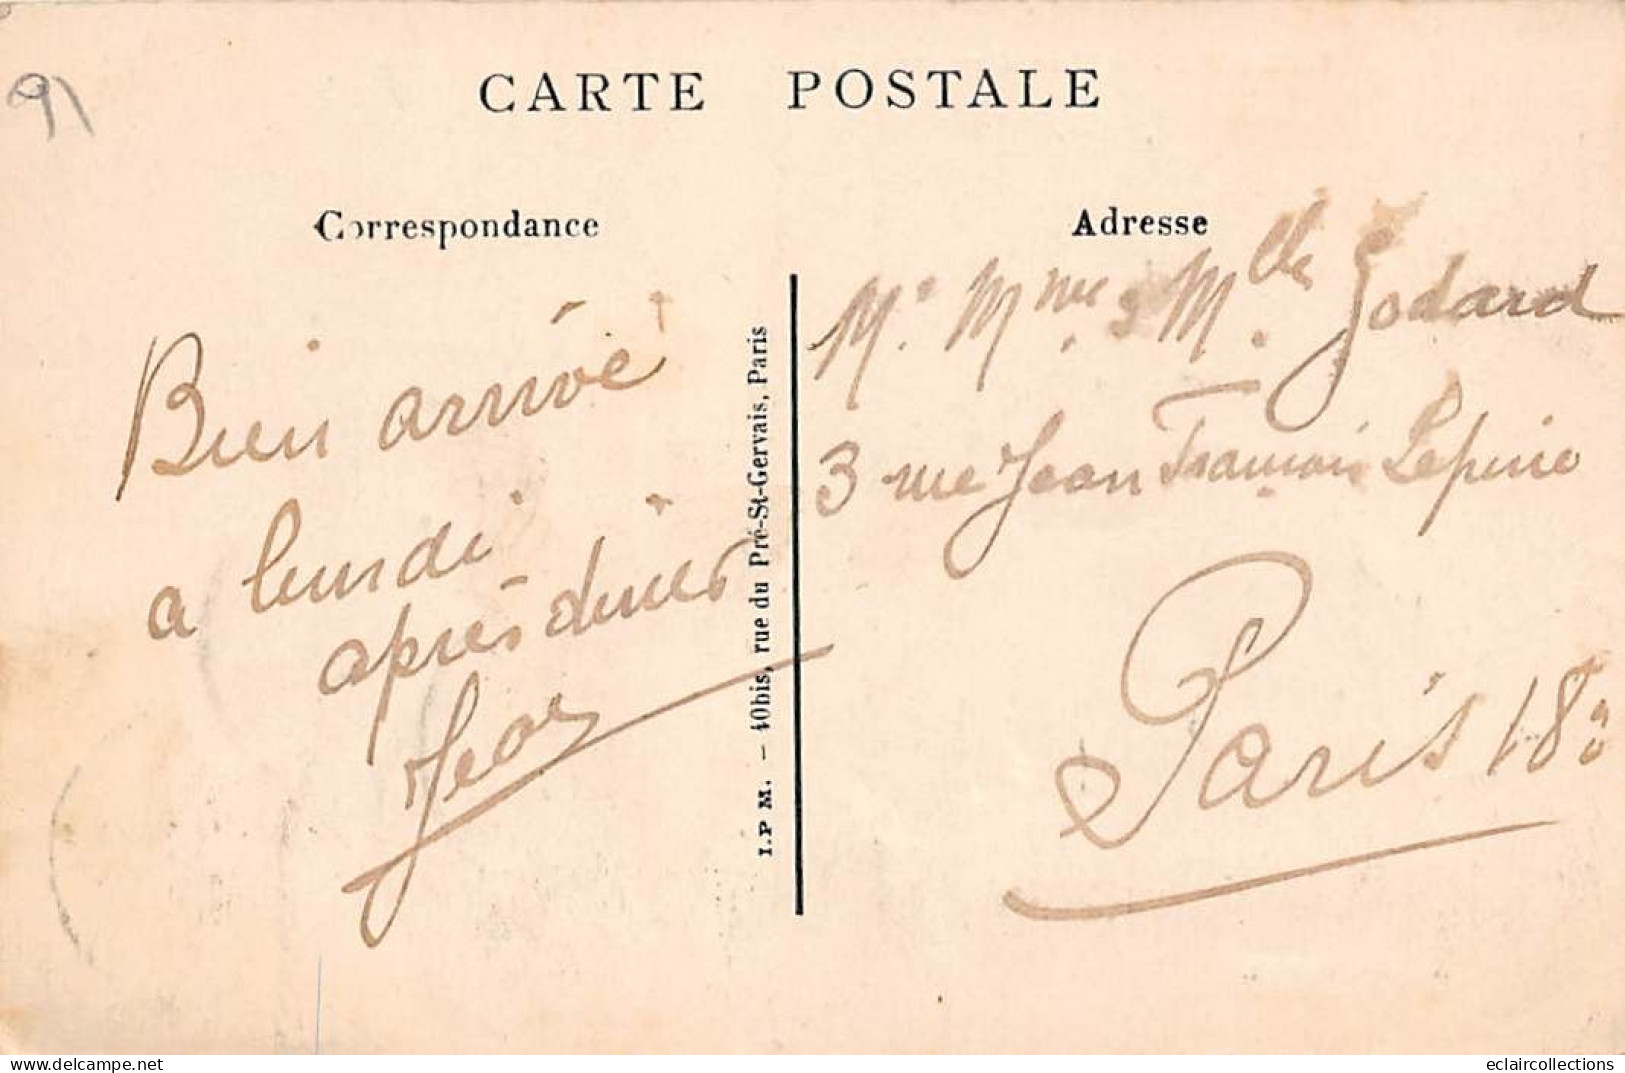 91
CARTE POSTALE
Correspondance
Adresse
Bien arrivé
a lundi
après diner
Jean
I.P M. — 40bis, rue du Pré-St-Gervais, Paris
Mr. Mme. & Mlle. Godard
3 rue Jean François Lepine
Paris 18e
delcampe.net
eclaircollections